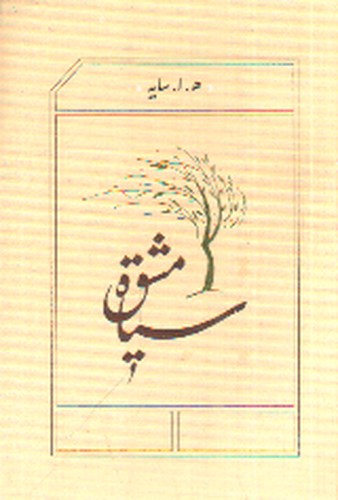 ه. ا. سایه
سیاه مشق